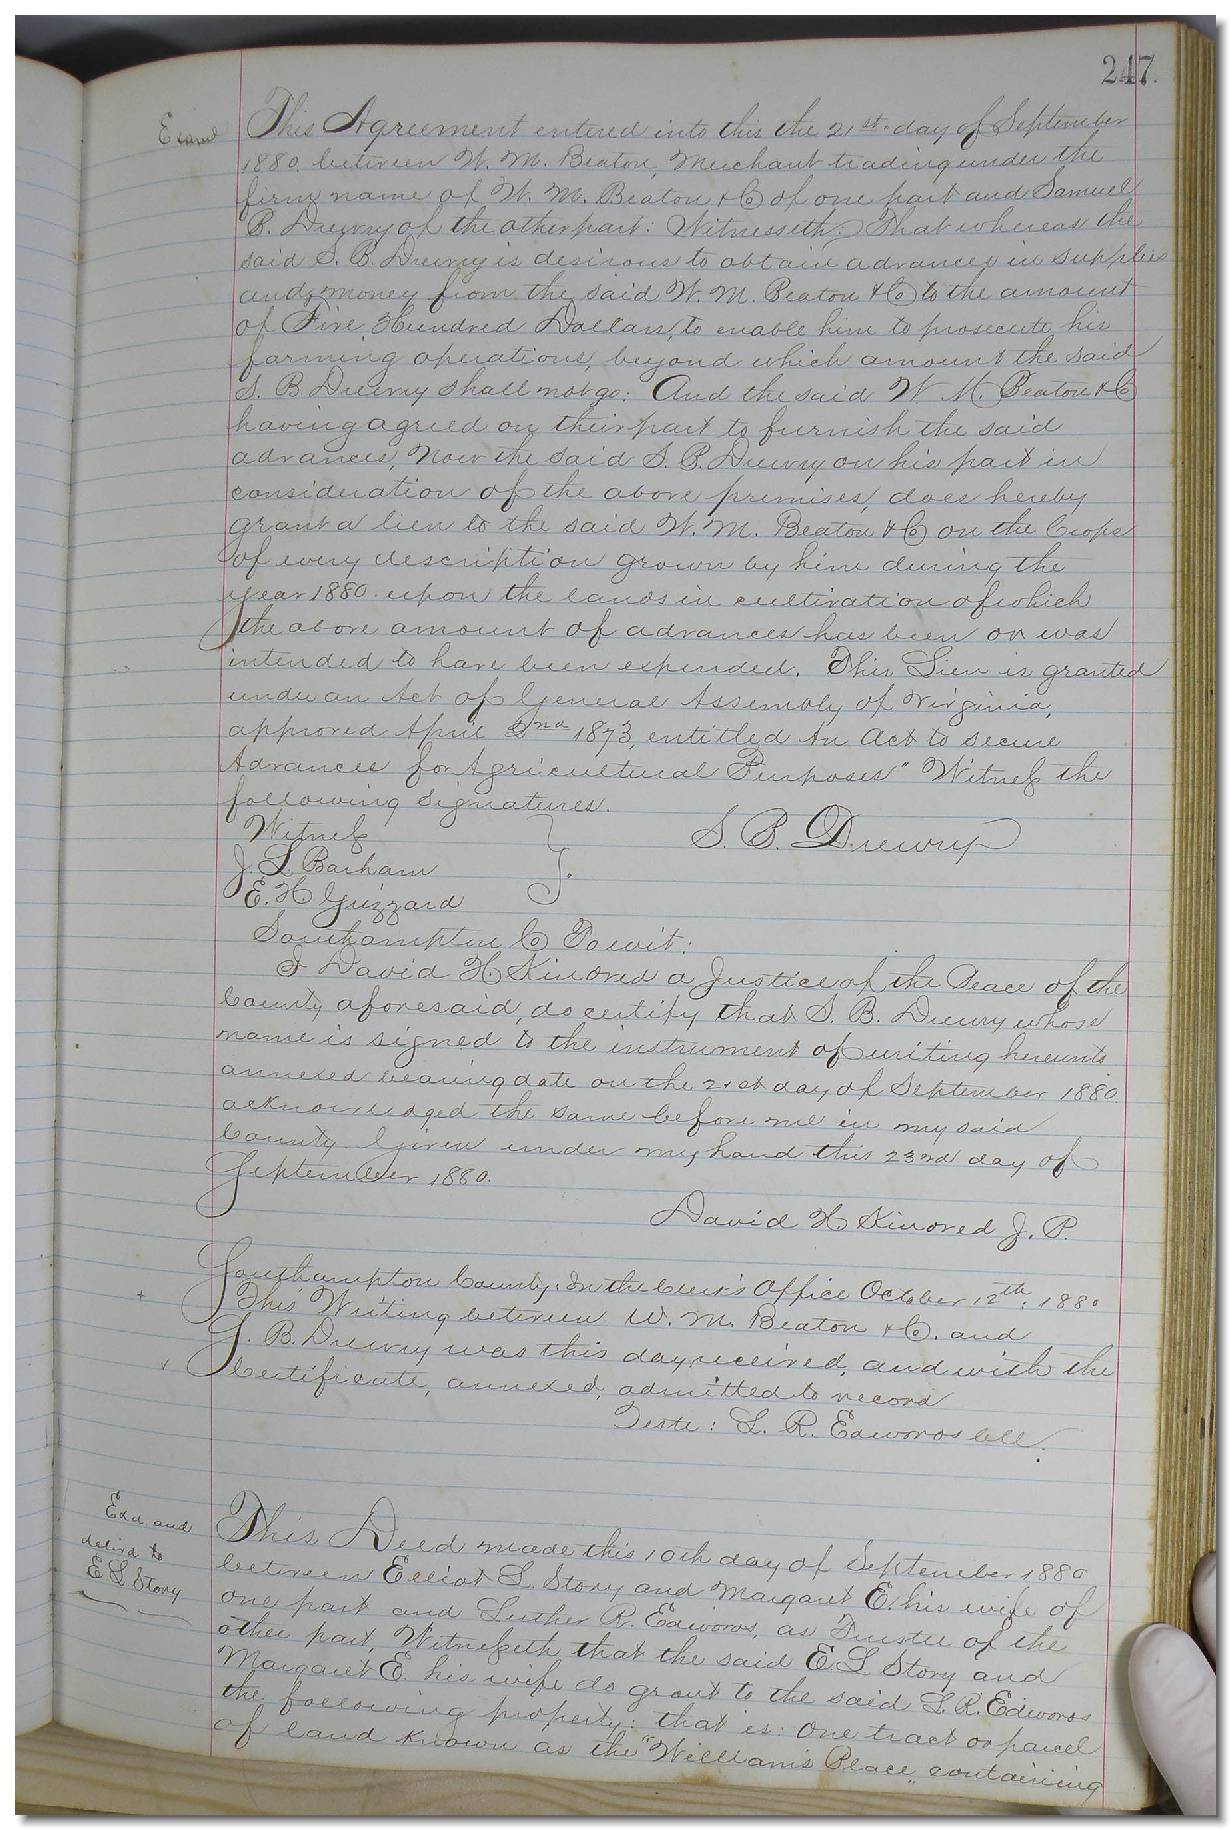 247.
Exam'd
This Agreement entered into this the 21st. day of September
1880. between W. M. Beaton, Merchant trading under the
firm name of W. M. Beaton & Co of one part and Samuel
B. Drewry of the other part: Witnesseth: That whereas the
said S. B. Drewry is desirous to obtain advances in supplies
and money from the said W. M. Beaton & Co to the amount
of Five Hundred Dollars, to enable him to prosecute his
farming operations, beyond which amount the said
S. B Drewry shall not go: And the said W. M. Beaton & Co
having agreed on their part to furnish the said
advances, Now the said S. B. Drewry on his part in
consideration of the above premises, does hereby
grant a lien to the said W. M. Beaton & Co on the Crops
of every description grown by him during the
year 1880. upon the lands in cultivation of which
the above amount of advances has been or was
intended to have been expended. This Lien is granted
under an Act of General Assembly of Virginia,
approved April 2nd 1873, entitled An Act to secure
Advances for Agricultural Purposes" Witness the
following signatures.
Witness
S. B. Drewry
J. L. Barham
E. H Grizzard
Southampton Co Towit:
I David H. Kindred a Justice of the Peace of the
County aforesaid, do certify that S. B. Drewry whose
name is signed to the instrument of writing hereunto
annexed bearing date on the 21st day of September 1880.
acknowledged the same before me in my said
County Given under my hand this 23rd day of
September 1880.
David H Kindred J. P.
Southampton County. In the Clerk's Office October 12th. 1880
This Writing between W. M. Beaton & Co. and
S. B. Drewry was this day received, and with the
Certificate, annexed, admitted to record
Teste: L. R. Edwards Clk.
Exd and
delivd to
E L Story
This Deed made this 10th day of September 1880
between Elliot L. Story and Margaret E. his wife of
one part and Luther R. Edwards, as Trustee of the
other part, Witnesseth, that the said E. L Story and
Margaret E. his wife do grant to the said L. R. Edwards
the following property: that is: One tract or parcel
of land known as the "Williams Place", containing